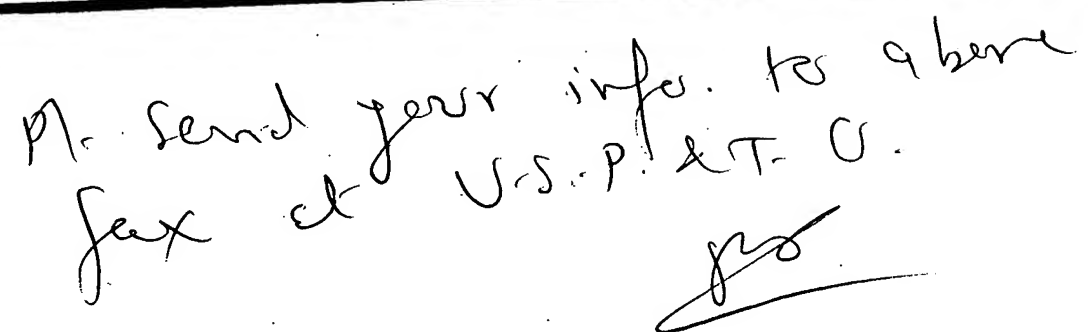 Pl. send your info. to above
fax at U.S.P. & T. O.